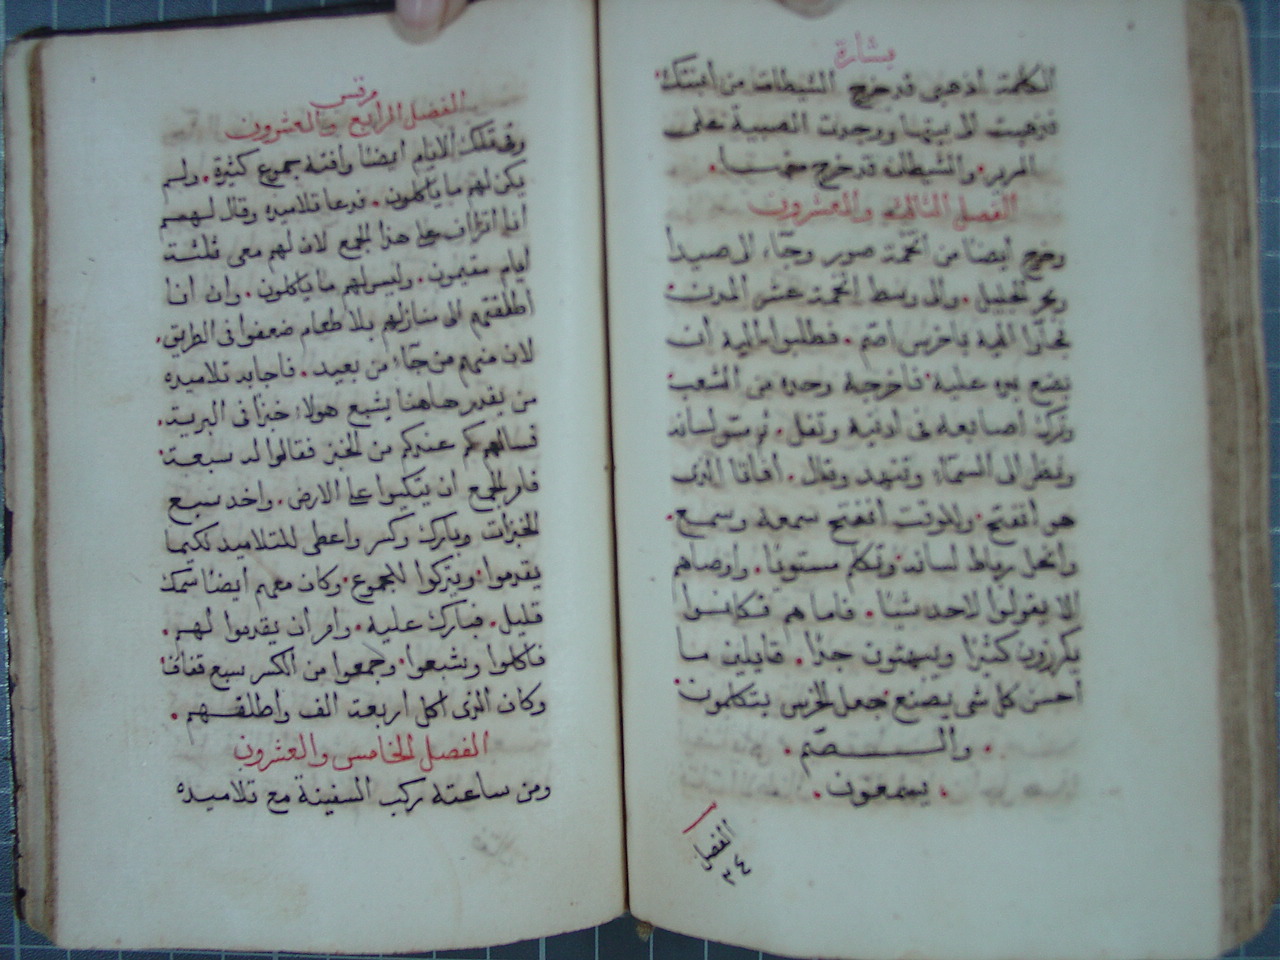 بشارة
الكلمة اذهبى قد خرج الشيطان من أبنتك
فذهبت الى بيتها ووجدت الصبية على
السرير. والشيطان قد خرج منها.
الفصل الثالث والعشرون
وخرج أيضا من تخمة صور وجاء الى صيدا
وبحر الجليل. والى وسط تخمة عشر المدن
فجاوا اليه باخرس اصم. فطلبوا اليه أن
يضع يده عليه فاخرجه وحده من الشعب
وترك اصابعه فى ادنيه وتفل. ثم مس لسانه
ونظر الى السماء وتنهد وقال. أفاثا الذى
هو أنفتح. وللوقت أنفتح سمعه وسمع.
وانحل رباط لسانه وتكلم مستويا. واوصاهم
الا يقولوا لاحد شيا. فاما هم فكانوا
يكرزون كثيرا ويبهتون جدا. قايلين ما
احسن كل شى يصنع جعل الخرس يتكلمون
. والصم.
. يسمعون.
الفصل
٢٤
مرقس
الفصل الرابع والعشرون
وفى تلك الايام ايضا وافته جموع كثيرة. ولم
يكن لهم ما ياكلون. فدعا تلاميذه وقال لهم
أنا اتراف على هذا الجمع لان لهم معى ثلثة
أيام مقيمون. وليس لهم ما ياكلون. وان أنا
أطلقتهم الى منازلهم بلا طعام ضعفوا فى الطريق.
لان منهم من جاء من بعيد. فاجابه تلاميذه
من يقدر هاهنا يشبع هولاء خبزا فى البرية.
فسالهم كم عندكم من الخبز فقالوا له سبعة.
فامر الجمع ان يتكيوا على الارض. واخد سبع
الخبزات وبارك وكسر واعطى للتلاميد لكيما
يقدموا. ويتركوا للجموع. وكان معهم أيضا سمك
قليل. فبارك عليه. وامر ان يقدموا لهم.
فاكلوا وشبعوا. وجمعوا من الكسر سبع قفاف
وكان الذى اكل اربعة الف واطلقهم.
الفصل الخامس والعشرون
ومن ساعته ركب السفينة مع تلاميذه